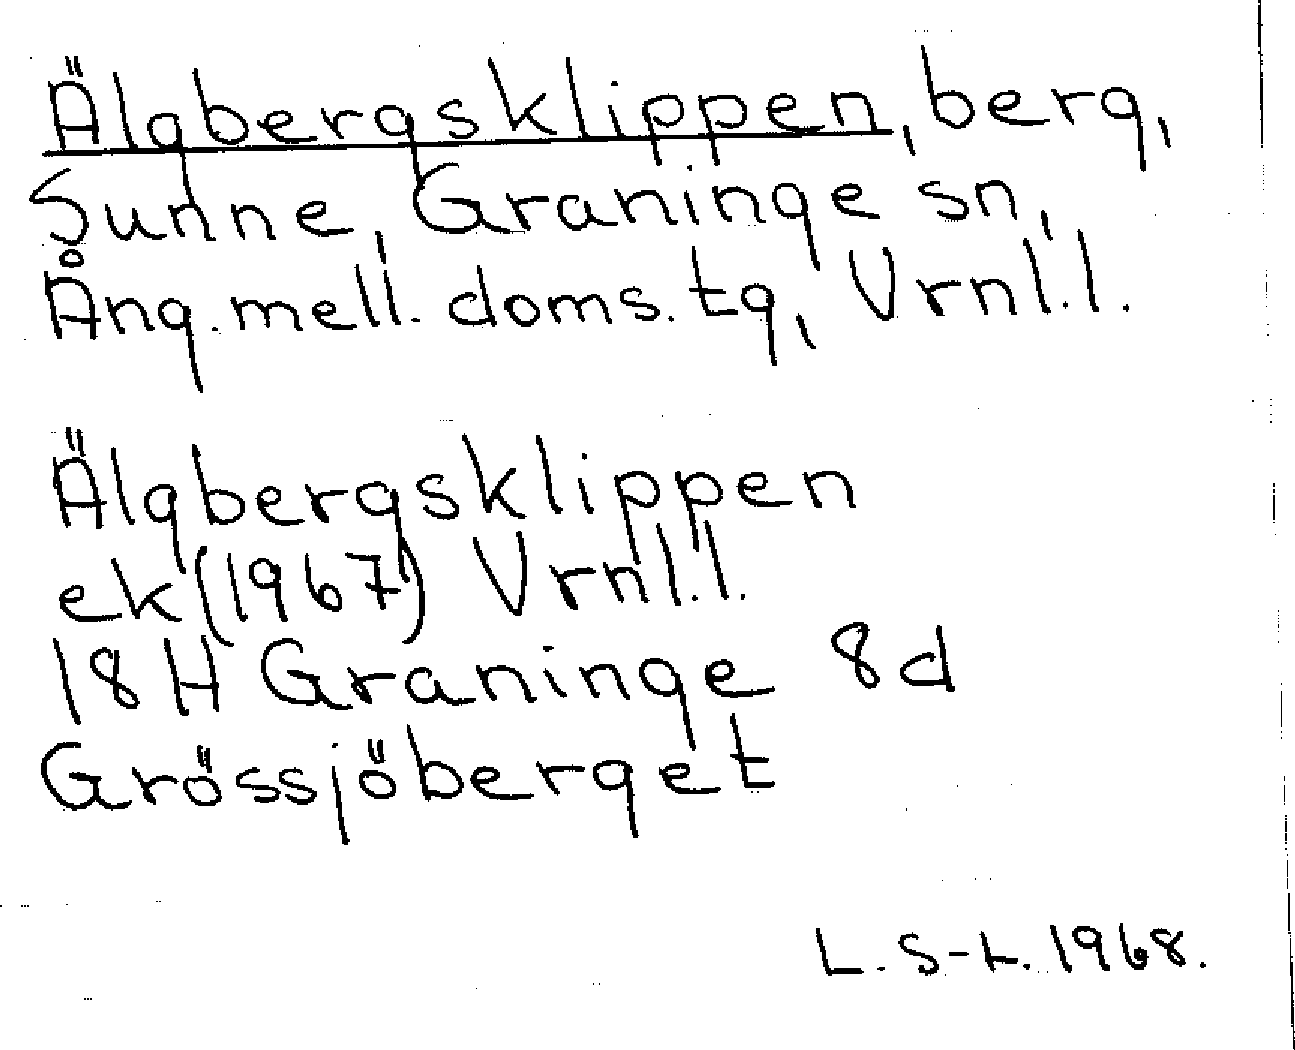 Älgbergsklippen, berg,
Sunne, Graninge sn,
Ång. mell. doms. tg, Vrnl.l.
Älgbergsklippen
ek (1967) Vrnl.l.
18H Graninge 8d
Grössjöberget
L. S-L. 1968.